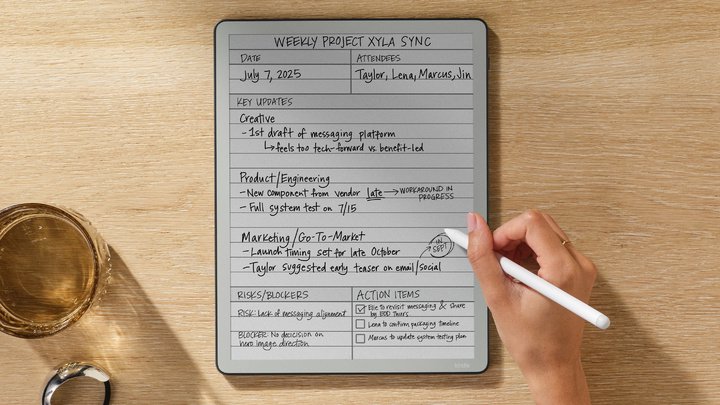 WEEKLY PROJECT XYLA SYNC
DATE
ATTENDEES
July 7, 2025
Taylor, Lena, Marcus, Jin
KEY UPDATES
Creative
- 1st draft of messaging platform
↳ feels too tech-forward vs. benefit-led
Product/Engineering
- New component from vendor late → WORKAROUND IN
PROGRESS
- Full system test on 7/15
Marketing/Go-To-Market
- Launch timing set for late October
IN
SEPT
- Taylor suggested early teaser on email/social
RISKS/BLOCKERS
RISK: Lack of messaging alignment
BLOCKER: No decision on
hero image direction
ACTION ITEMS
Elle to revisit messaging & share
by EOD Thurs.
Lena to confirm packaging timeline
Marcus to update system testing plan
kindle